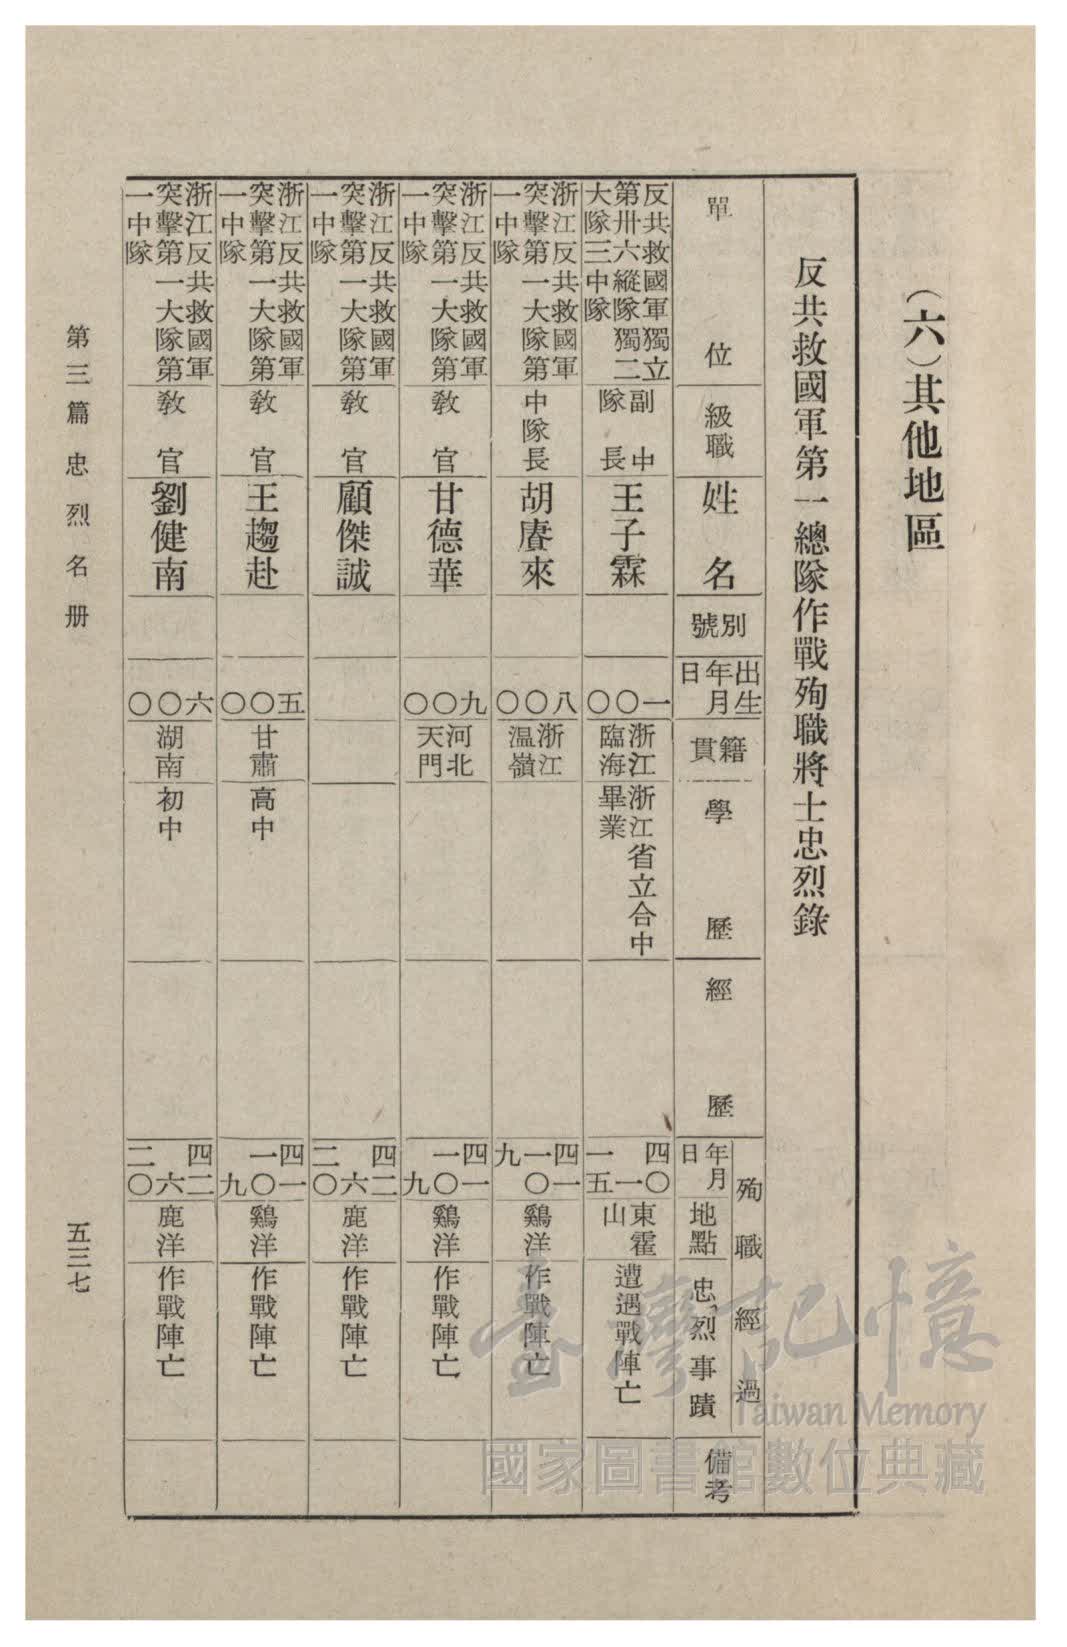 (六)其他地區
反共救國軍第一總隊作戰殉職將士忠烈錄
單位
級職
姓名
別號
出生
年月
日
籍貫
學歷
經歷
殉職經過
年月
日
地點
忠烈事蹟
備考
反共救國軍獨立
第卅六縱隊獨二
大隊三中隊
副中
隊長
王子霖
一〇〇
浙江
臨海
浙江省立合中
畢業
四〇
一
一五
東霍
山
遭遇戰陣亡
浙江反共救國軍
突擊第一大隊第
一中隊
中隊長
胡賡來
八〇〇
浙江
溫嶺
四一
一〇
九
鷄洋
作戰陣亡
浙江反共救國軍
突擊第一大隊第
一中隊
教官
甘德華
九〇〇
河北
天門
四一
一〇
九
鷄洋
作戰陣亡
浙江反共救國軍
突擊第一大隊第
一中隊
教官
顧傑誠
四二
六
二〇
鹿洋
作戰陣亡
浙江反共救國軍
突擊第一大隊第
一中隊
教官
王趨赴
五〇〇
甘肅
高中
四一
一〇
九
鷄洋
作戰陣亡
浙江反共救國軍
突擊第一大隊第
一中隊
教官
劉健南
六〇〇
湖南
初中
四二
六
二〇
鹿洋
作戰陣亡
第三篇忠烈名册
五三七
臺灣記憶
Taiwan Memory
國家圖書館數位典藏